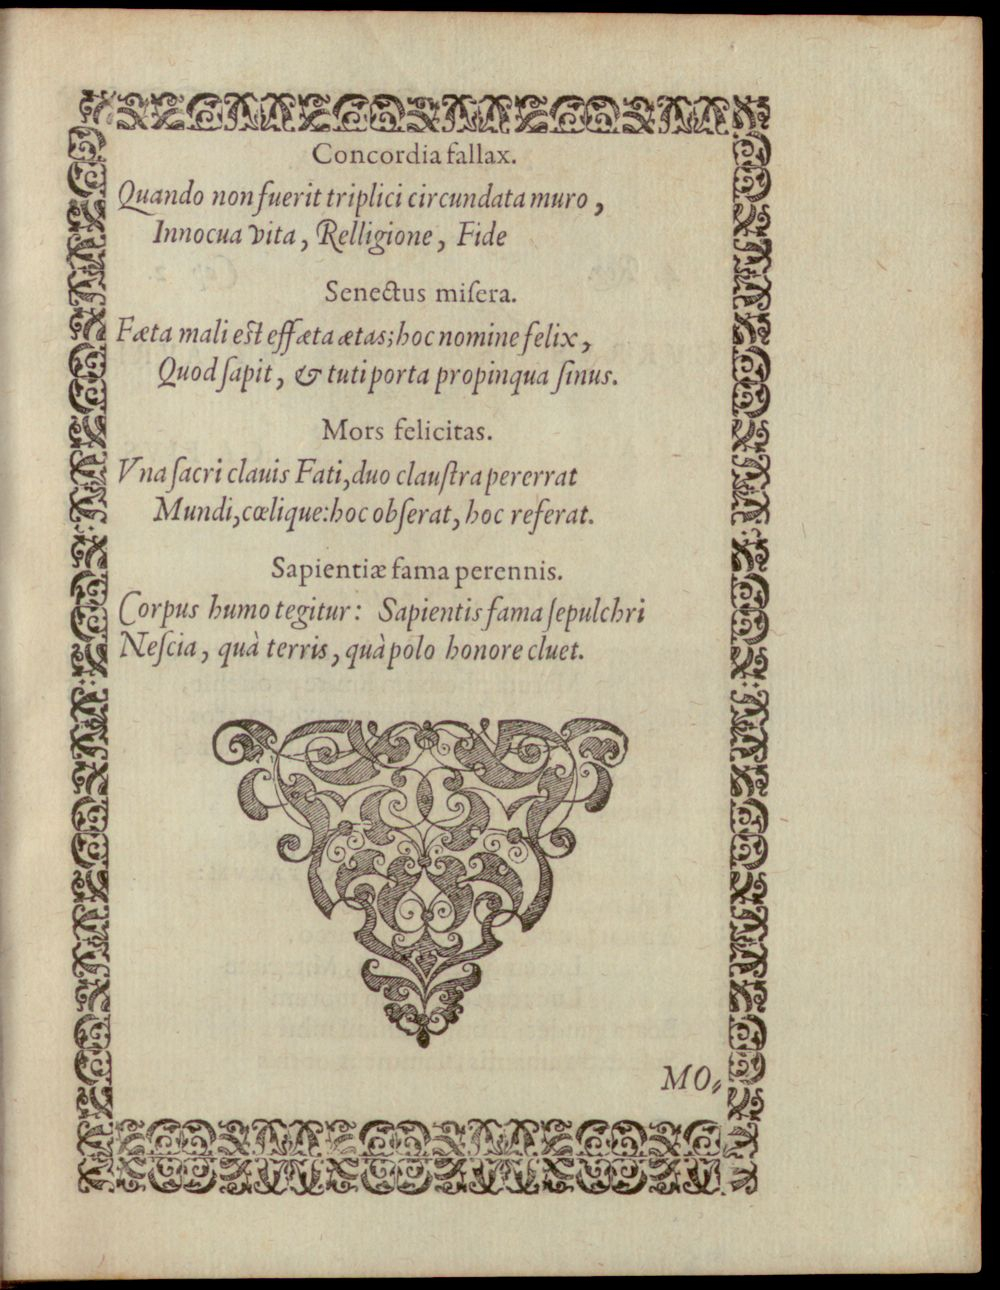 Concordia fallax.
Quando non fuerit triplici circundata muro,
Innocua vita, Relligione, Fide
Senectus miſera.
Fæta mali est effæta ætas; hoc nomine felix,
Quod ſapit, & tuti porta propinqua ſinus.
Mors felicitas.
Vna ſacri clauis Fati, duo clauſtra pererrat
Mundi, cœlique: hoc obſerat, hoc referat.
Sapientiæ fama perennis.
Corpus humo tegitur: Sapientis fama ſepulchri
Neſcia, quà terris, quà polo honore cluet.
MO-